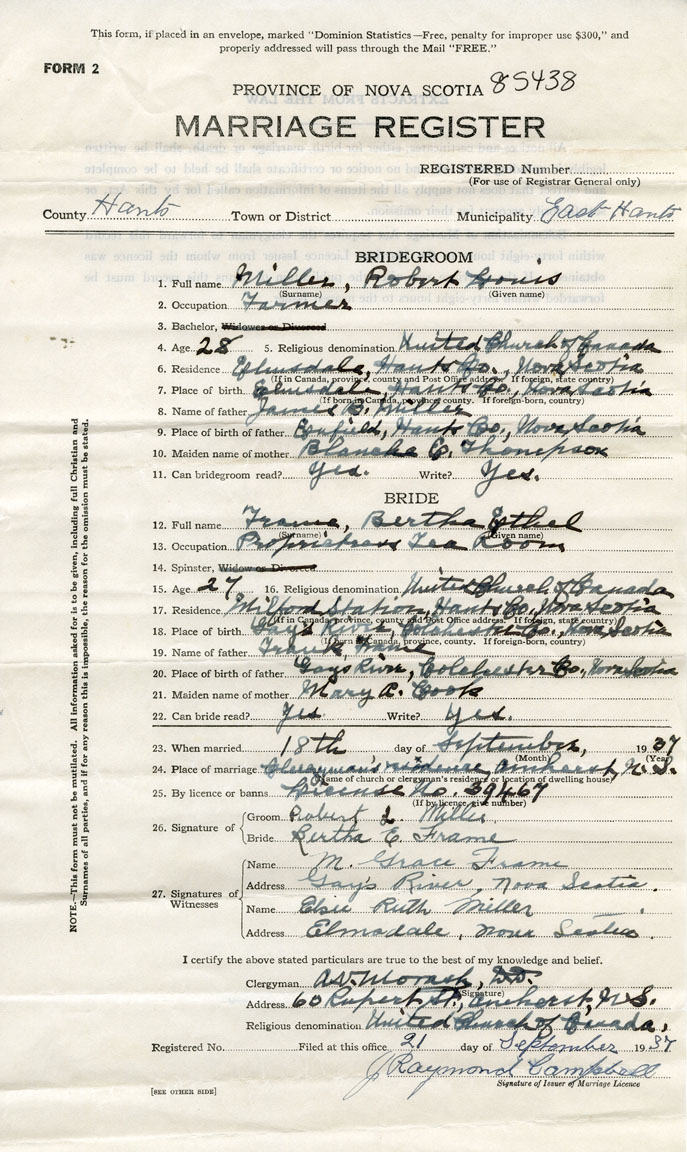 This form, if placed in an envelope, marked "Dominion Statistics—Free, penalty for improper use $300," and
properly addressed will pass through the Mail "FREE."
FORM 2
PROVINCE OF NOVA SCOTIA 85438
MARRIAGE REGISTER
REGISTERED Number
(For use of Registrar General only)
County Hants Town or District Municipality East Hants
BRIDEGROOM
1. Full name Miller, Robert Louis
(Surname) (Given name)
2. Occupation Farmer
3. Bachelor, Widower or Divorced
4. Age 28 5. Religious denomination United Church of Canada
6. Residence Elmsdale, Hants Co., Nova Scotia
(If in Canada, province, county and Post Office address. If foreign, state country)
7. Place of birth Elmsdale, Hants Co., Nova Scotia
(If born in Canada, province, county. If foreign-born, country)
8. Name of father James B. Miller
9. Place of birth of father Enfield, Hants Co., Nova Scotia
10. Maiden name of mother Blanche E. Thompson
11. Can bridegroom read? Yes. Write? Yes.
BRIDE
12. Full name Frame, Bertha Ethel
(Surname) (Given name)
13. Occupation Proprietress Tea Room
14. Spinster, Widow or Divorced
15. Age 27 16. Religious denomination United Church of Canada
17. Residence Milford Station, Hants Co., Nova Scotia
(If in Canada, province, county and Post Office address. If foreign, state country)
18. Place of birth Gay's River, Colchester Co., Nova Scotia
(If born in Canada, province, county. If foreign-born, country)
19. Name of father Frank Frame
20. Place of birth of father Gays River, Colchester Co., Nova Scotia
21. Maiden name of mother Mary A. Cook
22. Can bride read? Yes. Write? Yes.
23. When married 18th day of September, 1937
(Month) (Year)
24. Place of marriage Clergyman's residence, Amherst, N.S.
(Name of church or clergyman's residence or location of dwelling house)
25. By licence or banns License No. 39467
(If by licence, give number)
26. Signature of Groom Robert L. Miller
Bride Bertha E. Frame
27. Signatures of Witnesses
Name M. Grace Frame
Address Gay's River, Nova Scotia.
Name Elsie Ruth Miller
Address Elmsdale, Nova Scotia.
I certify the above stated particulars are true to the best of my knowledge and belief.
Clergyman A. D. Morash, D.D.
(Signature)
Address 60 Rupert St., Amherst, N.S.
Religious denomination United Church of Canada,
Registered No. Filed at this office 21 day of September 1937
J Raymond Campbell
Signature of Issuer of Marriage Licence
[SEE OTHER SIDE]
NOTE.—This form must not be mutilated. All information asked for is to be given, including full Christian and
Surnames of all parties, and if for any reason this is impossible, the reason for the omission must be stated.